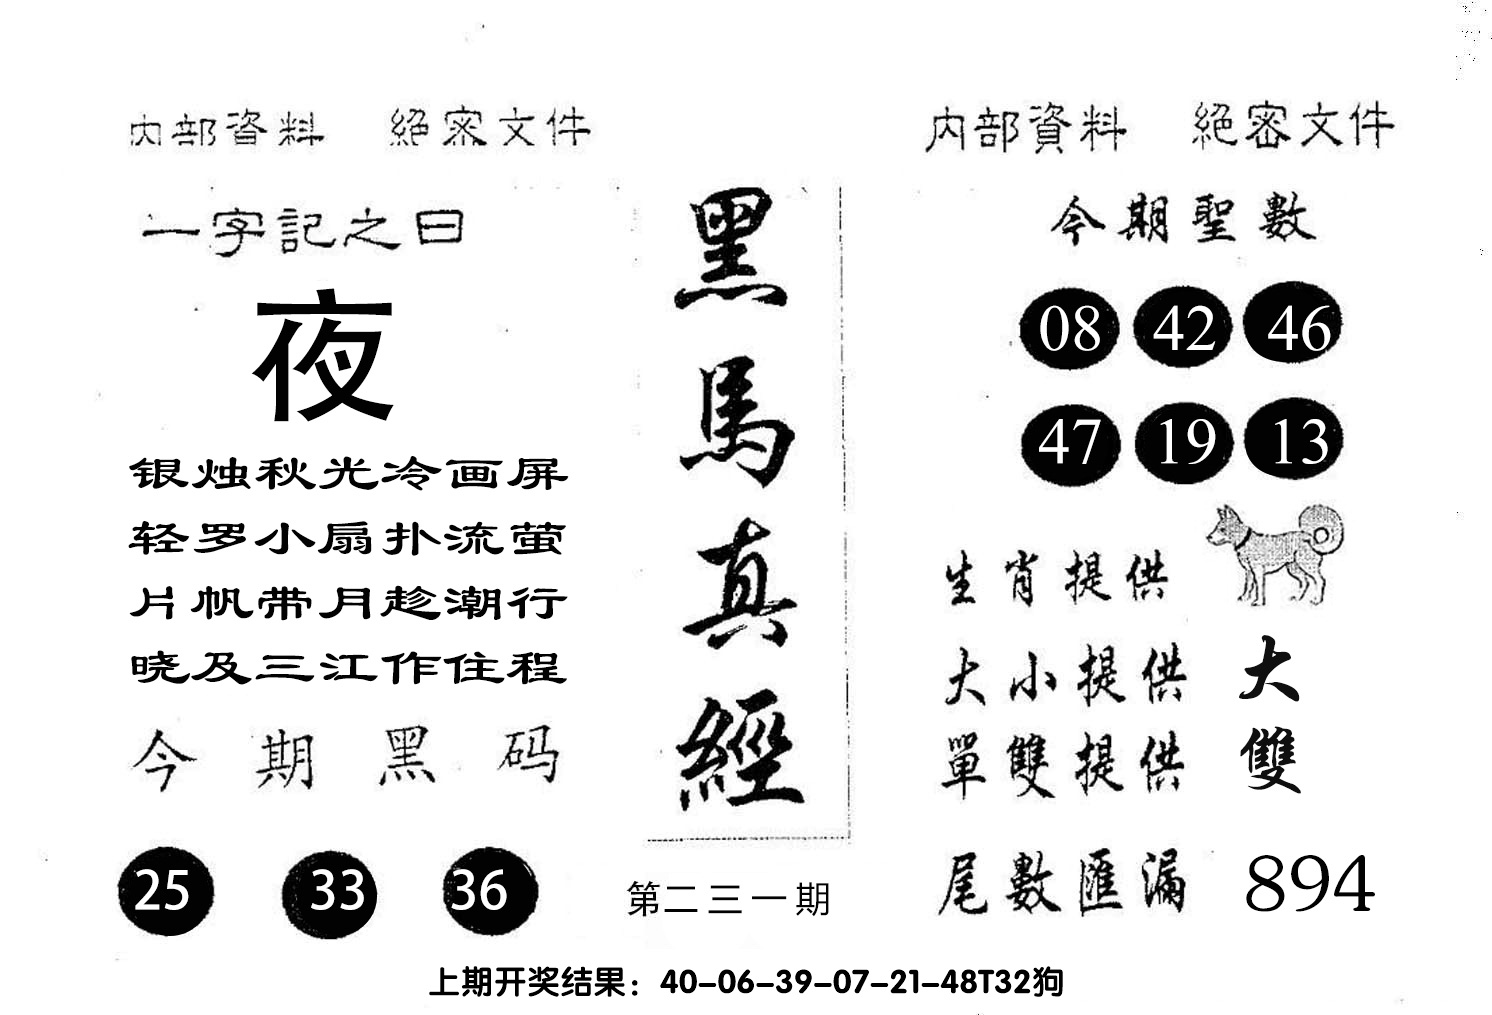 内部資料 絕密文件
一字記之曰
夜
银烛秋光冷画屏
轻罗小扇扑流萤
片帆带月趁潮行
晓及三江作住程
今期黑码
25 33 36
黑馬真經
第二三一期
内部資料 絕密文件
今期聖數
08 42 46
47 19 13
生肖提供
大小提供 大
單雙提供 雙
尾數匯漏 894
上期开奖结果：40-06-39-07-21-48T32狗